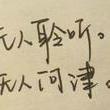 无人聆听。
无人问津。